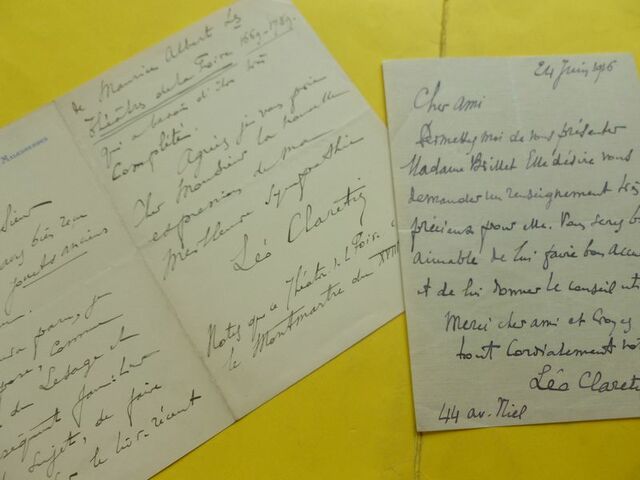 de Maurice Albert Les
Théâtres de la Foire 1660-1789.
qui a besoin d'être très
complété.
Agréez je vous prie
Cher Monsieur la nouvelle
expression de ma
meilleure sympathie
Léo Claretie
Notez que ce Théâtre de la Foire
le Montmartre du XVIII
sieur
très bien
jouets anciens
paru, j'ai
comme
du Lesage et
familier
sujet, de faire
le livre récent
24 Juin 1916
Cher ami
Permettez moi de vous présenter
Madame Brillet Elle désire vous
demander un renseignement très
précieux pour elle. Vous serez b
aimable de lui faire bon accu
et de lui donner le conseil uti
Merci cher ami et croyez
tout cordialement vo
Léo Clareti
44 av. Niel